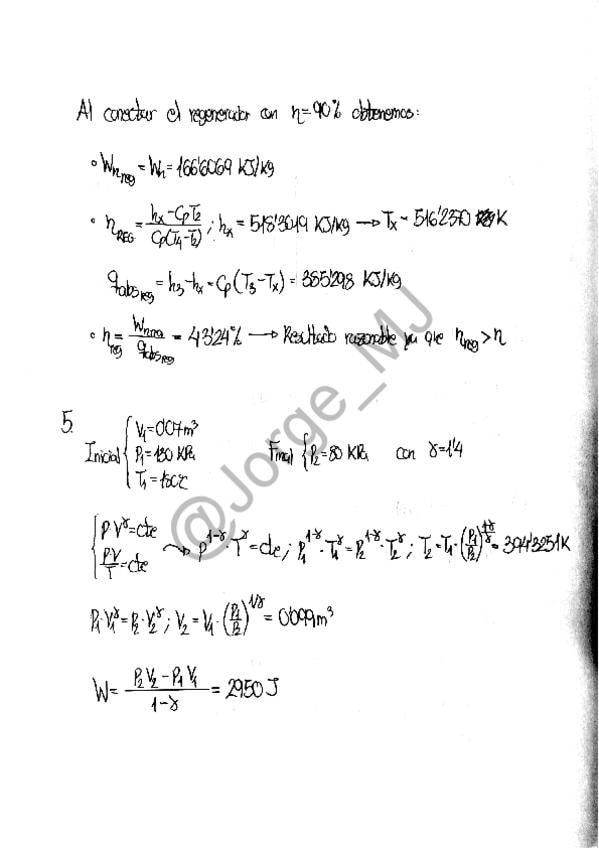 Al conectar el regenerador con η=90% obtenemos:
• Wn_reg = Wn = 166'6069 KJ/kg
• η_REG = (hx - CpT2)/(Cp(T4-T2)); hx = 518'3019 KJ/kg → Tx = 516'2370 K
qabs_reg = h3-hx = Cp(T3-Tx) = 385'298 KJ/kg
• η_reg = Wn_reg/qabs_reg = 43'24% → Resultado razonable ya que η_reg > η
5.
Inicial { V1=0'07m³
P1=130 KPa
T1=180ºC
Final { P2=80 KPa con γ=1'4
{ P·V^γ=cte
PV/T=cte
⇝ P^(1-γ)·T^γ=cte; P1^(1-γ)·T1^γ=P2^(1-γ)·T2^γ; T2=T1·(P1/P2)^((1-γ)/γ)=394'3251K
P1·V1^γ=P2·V2^γ; V2=V1·(P1/P2)^(1/γ)=0'099m³
W=(P2V2-P1V1)/(1-γ)=2950J
@Jorge_MJ